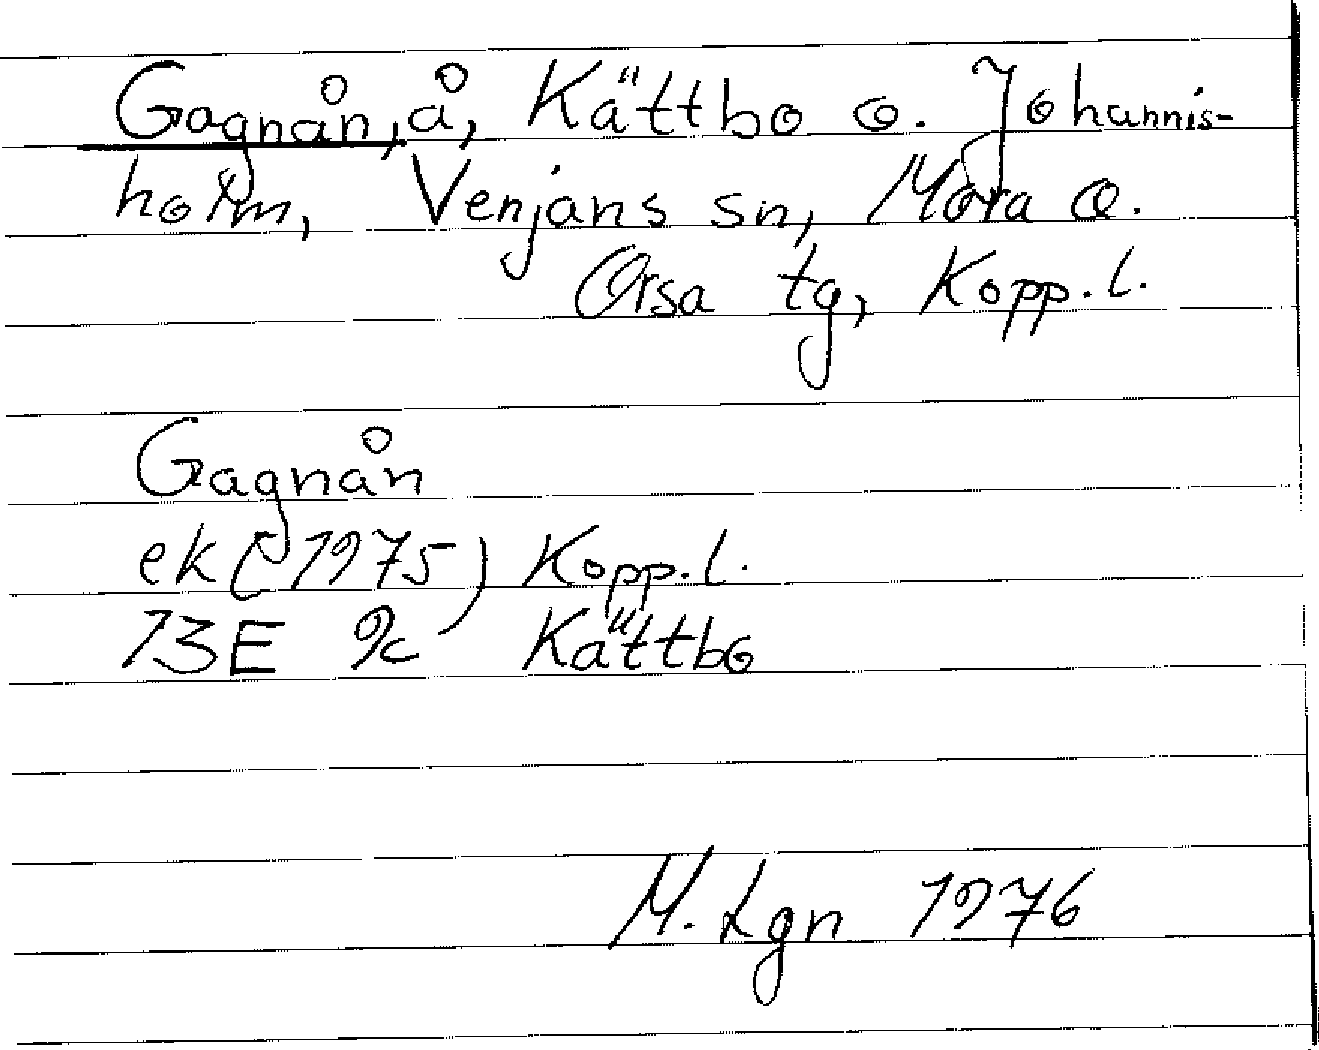 Gagnån, å, Kättbo o. Johannis-
holm, Venjans sn, Mora o.
Orsa tg, Kopp. l.
Gagnån
ek (1975) Kopp. l.
13E 9c Kättbo
M. Lgn 1976